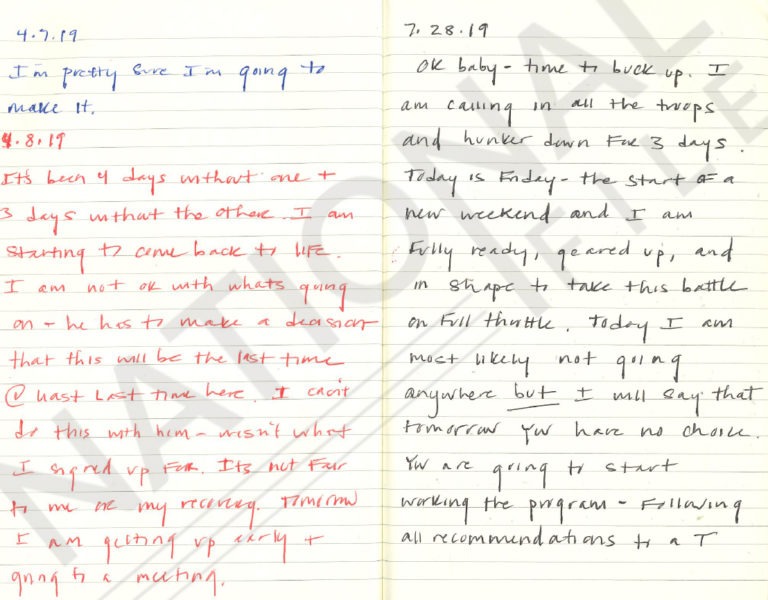 4.7.19
I'm pretty sure I'm going to
make it.
4.8.19
It's been 4 days without one +
3 days without the other. I am
starting to come back to life.
I am not ok with whats going
on - he has to make a decision
that this will be the last time
@ least last time here. I can't
do this with him - wasn't what
I signed up for. Its not fair
to me or my recovery. Tomorrow
I am getting up early +
going to a meeting.
7.28.19
OK baby - time to buck up. I
am calling in all the troops
and hunker down for 3 days.
Today is Friday - the start of a
new weekend and I am
fully ready, geared up, and
in shape to take this battle
on full throttle. Today I am
most likely not going
anywhere but I will say that
tomorrow you have no choice.
You are going to start
working the program - following
all recommendations to a T
NATIONAL FILE